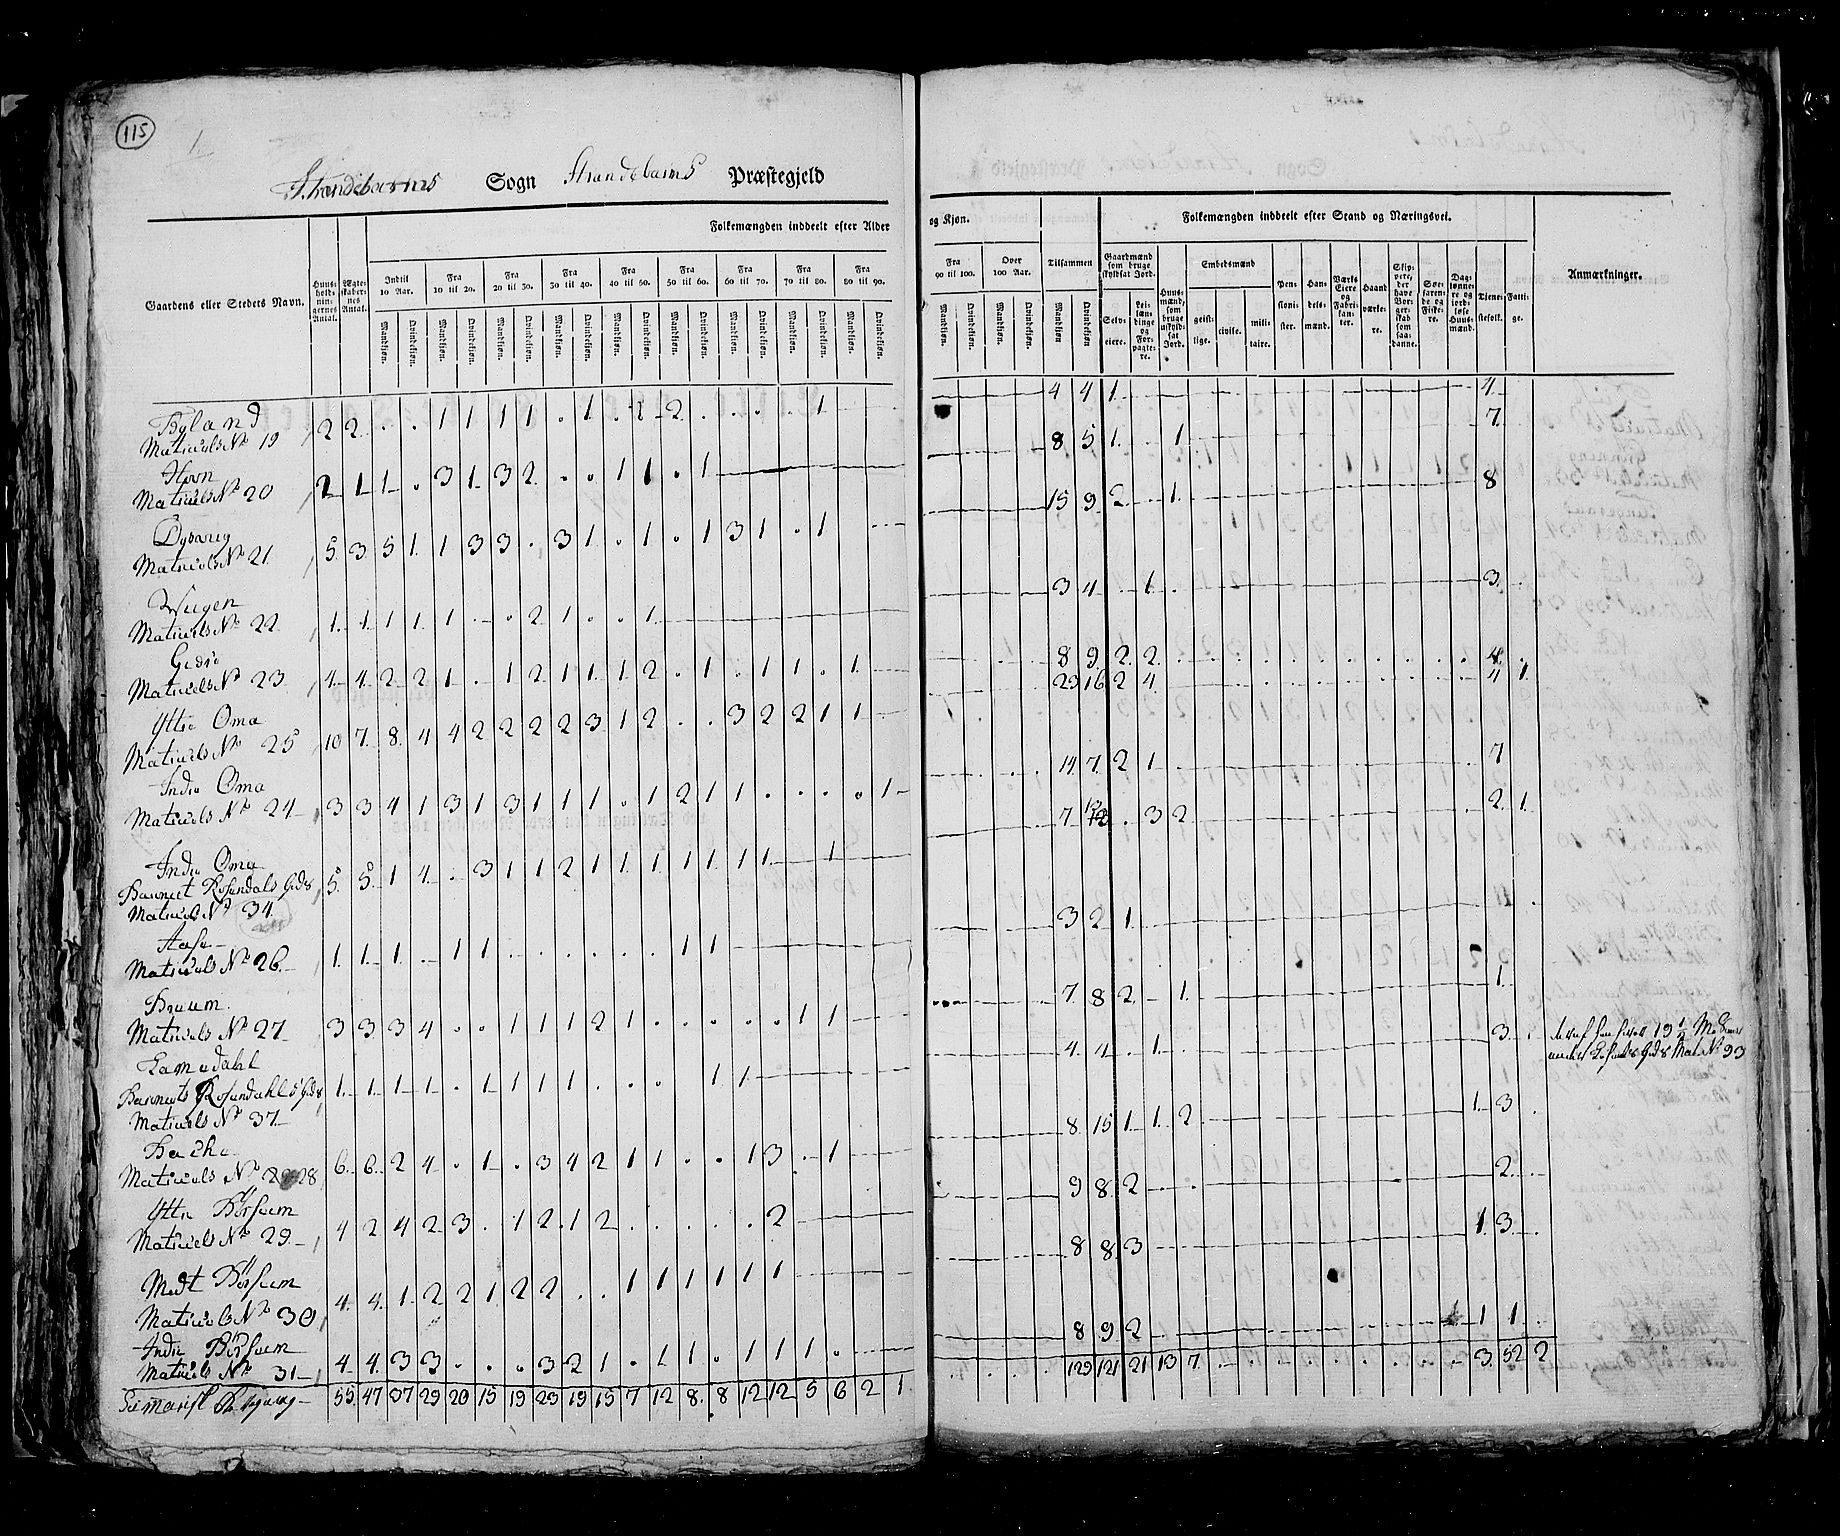 115
Strandebarms Sogn Strandebarms Præstegjeld
Gaardens eller Stedets Navn.
Huus-holdningernes Antal.
Ægteskabernes Antal.
Folkemængden inddeelt efter Alder
Indtil 10 Aar. Fra 10 til 20. Fra 20 til 30. Fra 30 til 40. Fra 40 til 50. Fra 50 til 60. Fra 60 til 70. Fra 70 til 80. Fra 80 til 90.
Mandkjøn. Qvindekjøn. Mandkjøn. Qvindekjøn. Mandkjøn. Qvindekjøn. Mandkjøn. Qvindekjøn. Mandkjøn. Qvindekjøn. Mandkjøn. Qvindekjøn. Mandkjøn. Qvindekjøn. Mandkjøn. Qvindekjøn. Mandkjøn. Qvindekjøn.
Byland
Matriculs No 19 2 2 . . 1 1 1 1 . 1 . 2 2 . . . . 1
Matriculs No 20 2 1 1 . 3 1 3 2 . . 1 1 . 1
Matriculs No 21 5 3 5 1 1 3 3 . 3 1 . 1 . 1 3 1 . 1
Matriculs No 22 1 1 1 1 1 . . 2 1 . . 1
Matriculs No 23 4 4 2 2 1 . 1 2 1 1 1 2 . 1 . 1 1 . 1
Yttre Oma
Matriculs No 25 10 7 8 4 4 2 2 2 2 3 1 2 . . 3 2 2 1 1
Indre Oma
Matriculs No 24 3 3 4 1 3 1 3 1 1 1 . 1 2 1 1 . . . . 1
Indre Oma
Baroniet Rosendals Gods 5 5 1 4 . 3 1 1 2 1 1 1 1 1 1 1 . 1
Matriculs No 34
Matriculs No 26 1 1 1 . 1 1 . . . . . . 1 1
Matriculs No 27 3 3 3 4 . . 1 1 1 2 1 . . . . . 1 1
Baroniets Rosendahls Gods 1 1 1 1 . 1 1 1 1 . . . 1 1
Matriculs No 37
Matriculs No 28 6 6 2 4 . 1 . 3 4 2 1 1 . . 1 3 . 1
Yttre Børsem
Matriculs No 29 4 2 4 2 3 . 1 2 1 2 . . . . . 2
Børsem
Matriculs No 30 4 4 1 2 2 1 2 2 . . 1 1 1 1 1 1
Indre Børsem
Matriculs No 31 4 4 3 3 . . . 3 2 1 . 1 1 . 1 1 1 .
55 47 37 29 20 15 19 23 19 15 7 12 8 8 12 12 5 6 2 1
og Kjøn.
Fra 90 til 100. Over 100 Aar.
Mandkjøn. Qvindekjøn. Mandkjøn. Qvindekjøn.
Tilsammen
Mandkjøn Qvindekjøn.
Folkemængden inddeelt efter Stand og Næringsvei.
Gaardmænd som bruge skyldsat Jord.
Selveiere. Leilændinge og Forpagtere.
Huusmænd, som bruge uskyldsat Jord.
Embedsmænd
geistlige. civile. militaire.
Pensionister.
Handelsmænd.
Værks Eiere og Fabrikanter.
Haandværkere.
Skippere, der have Borgerskab som saadanne.
Søefarende og Fiskere.
Daglønnere og jordløse Huusmænd.
Tjenestefolk.
Fattige.
Anmærkninger.
4 4 1 4
8 5 1 . 1 7
15 9 2 . 1 8
3 4 . 1 3
8 9 2 2 4
29 16 2 4 4 1
14 7 2 1 7
7 12 . 3 2 2 1
3 2 1
7 8 2 . 1 1
4 4 . 1 3
8 15 1 1 2 1 3
9 8 2 2
8 8 3 1 3
8 9 2 1 1
129 121 21 13 7 3 52 2